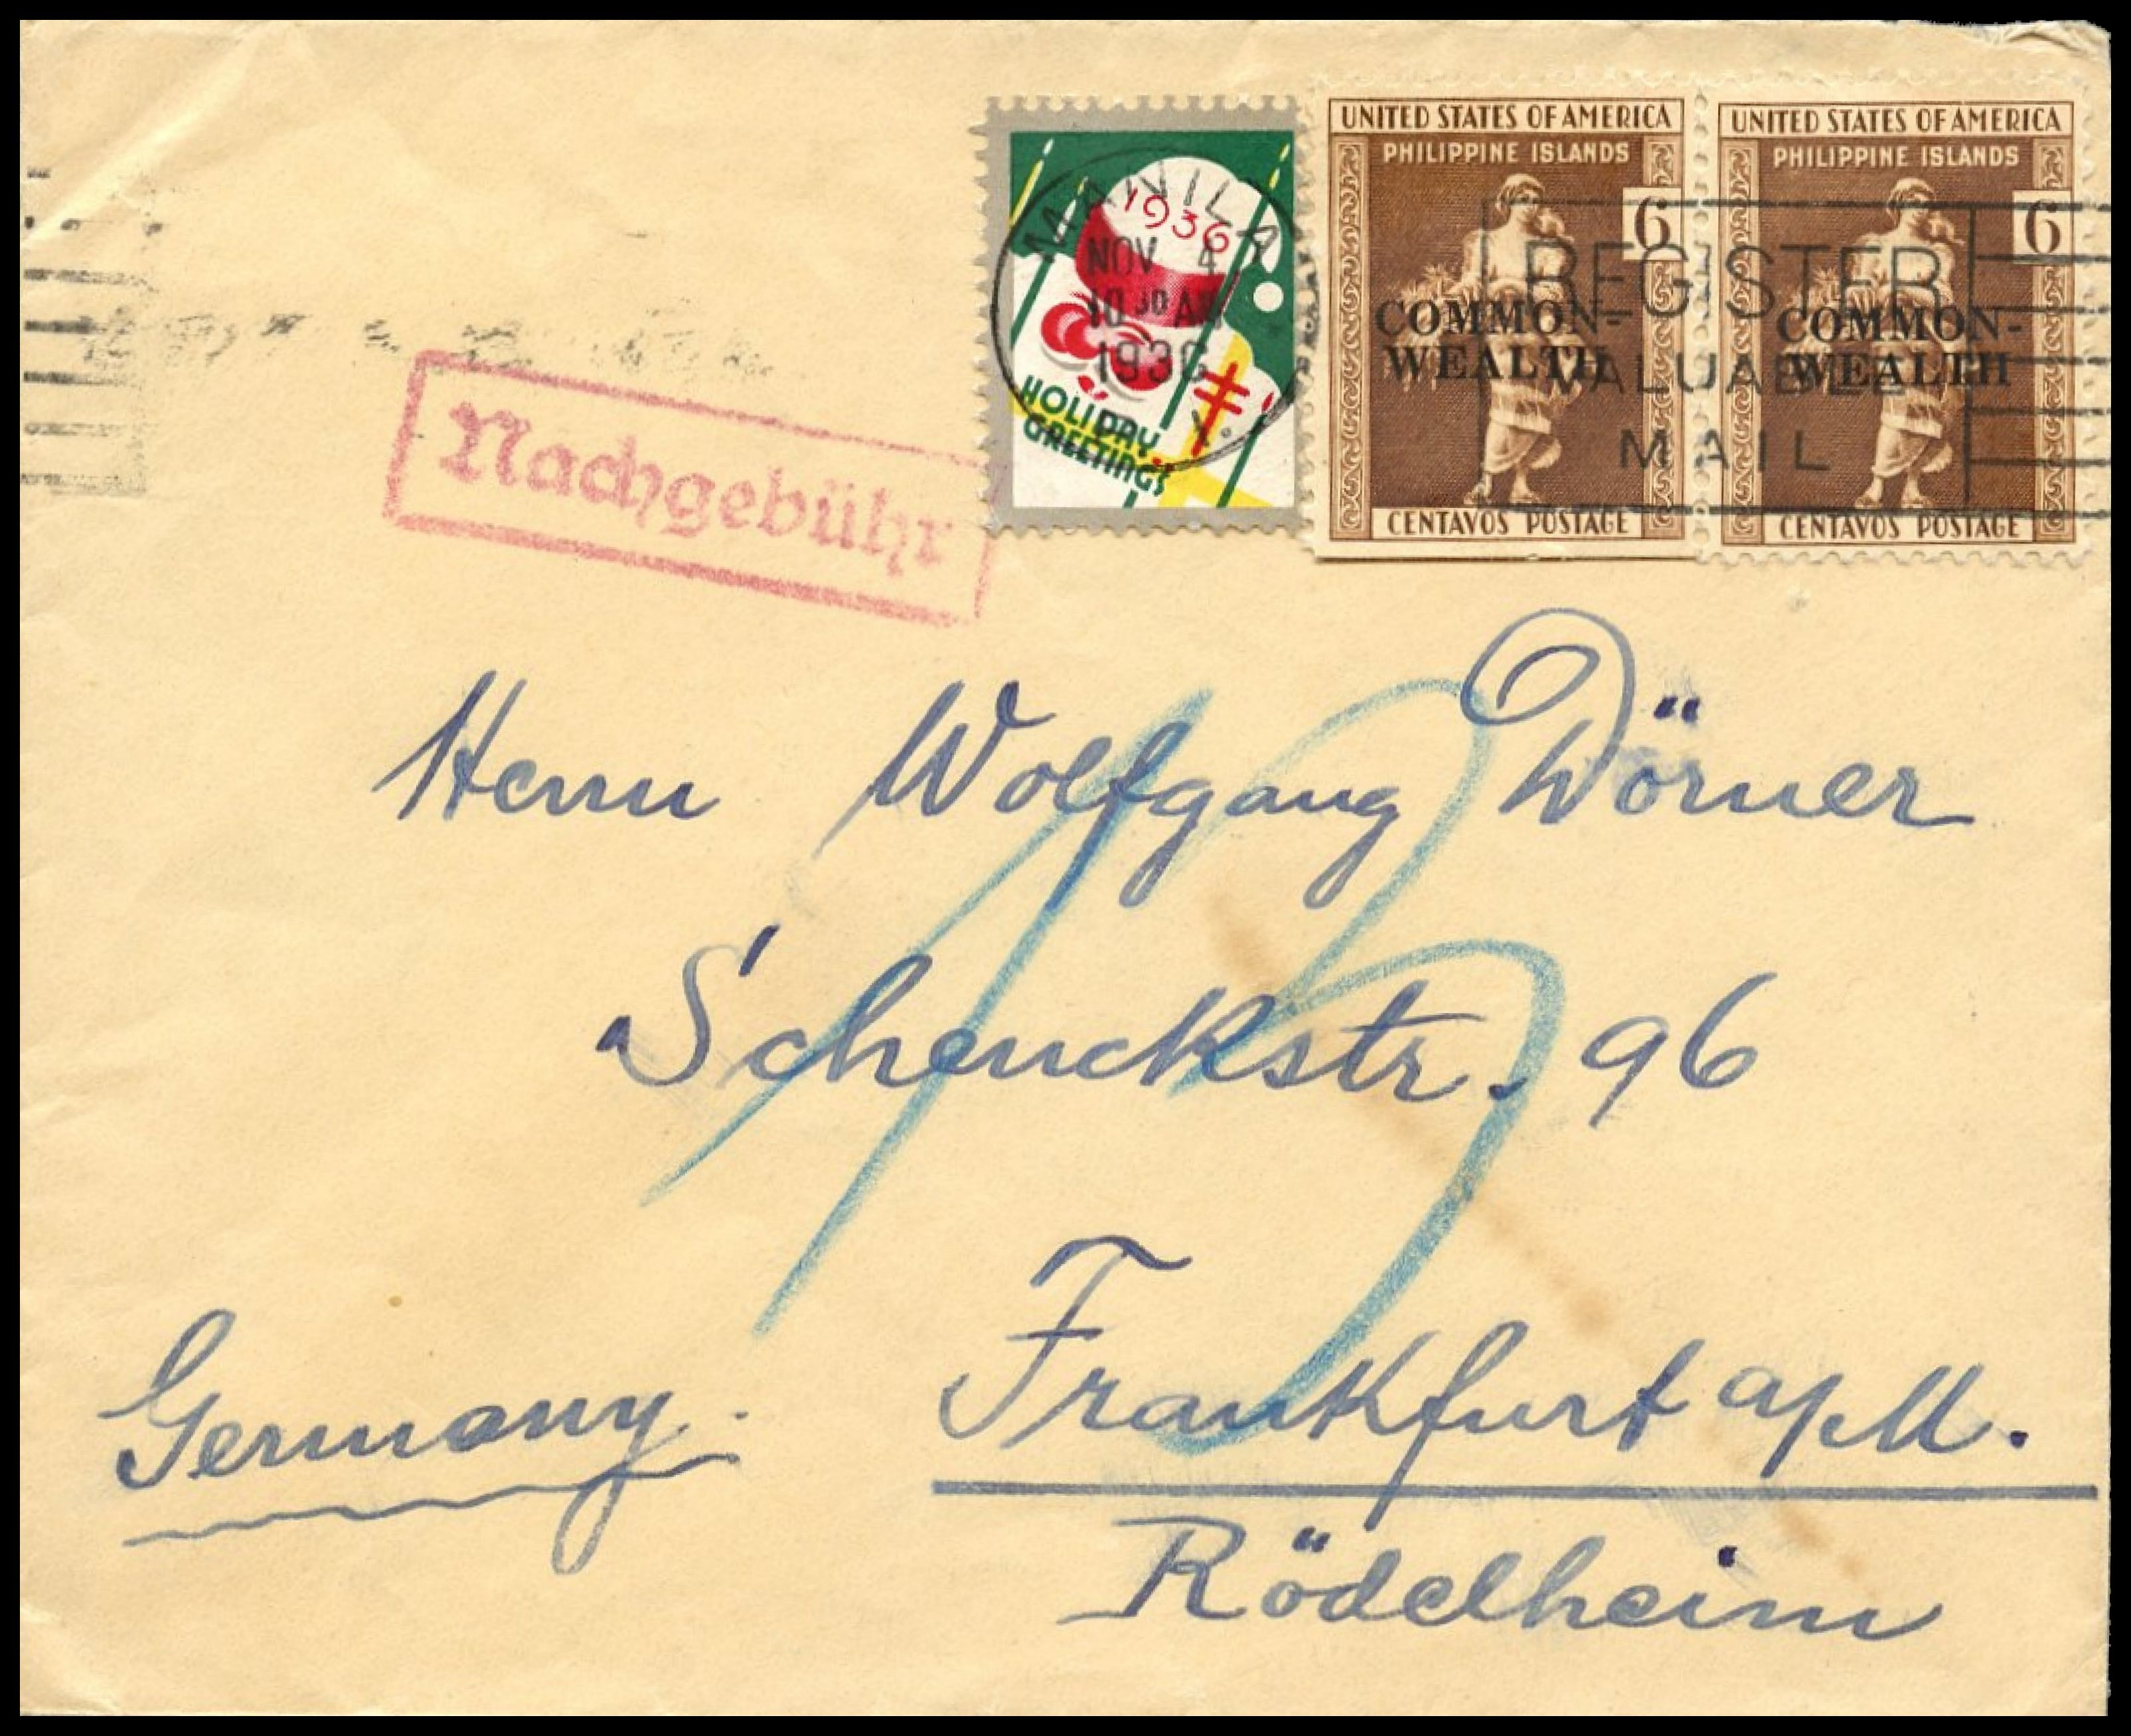 UNITED STATES OF AMERICA
PHILIPPINE ISLANDS
6
COMMON-
WEALTH
CENTAVOS POSTAGE
UNITED STATES OF AMERICA
PHILIPPINE ISLANDS
6
COMMON-
WEALTH
CENTAVOS POSTAGE
1936
HOLIDAY
GREETINGS
MANILA
NOV 4
10 30 AM
1936
P. I.
REGISTER
VALUABLE
MAIL
Nachgebühr
Herrn Wolfgang Dörner
Schenckstr. 96
Frankfurt a/M.
Germany.
Rödelheim